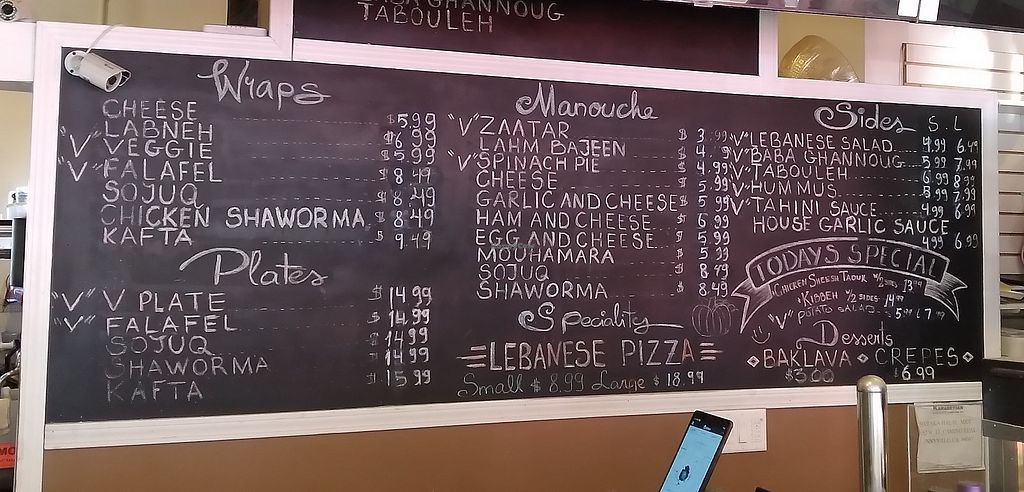 GHANNOUG
TABOULEH
Wraps
CHEESE $5.99
LABNEH $6.99
"V" VEGGIE $5.99
"V" FALAFEL $8.49
SOJUQ $8.49
CHICKEN SHAWORMA $8.49
KAFTA $9.49
Plates
"V" V PLATE $14.99
"V" FALAFEL $14.99
SOJUQ $14.99
SHAWORMA $14.99
KAFTA $15.99
Manouche
"V" ZAATAR $3.99
LAHM BAJEEN $4.99
"V" SPINACH PIE $4.99
CHEESE $4.99
GARLIC AND CHEESE $5.99
HAM AND CHEESE $6.99
EGG AND CHEESE $5.99
MOUHAMARA $5.99
SOJUQ $8.79
SHAWORMA $8.49
Speciality
LEBANESE PIZZA
Small $8.99 Large $18.99
Sides S. L
"V" LEBANESE SALAD 4.99 6.49
"V" BABA GHANNOUG 5.99 7.99
"V" TABOULEH 6.99 8.99
"V" HUMMUS 5.99 7.99
"V" TAHINI SAUCE 4.99 6.99
HOUSE GARLIC SAUCE 4.99 6.99
TODAYS SPECIAL
CHICKEN SHEESH TAOUK W/ SIDES 13.99
KIBBEH 1/2 SIDES 14.99
"V" POTATO SALAD 5.99 L 7.99
Desserts
BAKLAVA CREPES
$3.00 $6.99